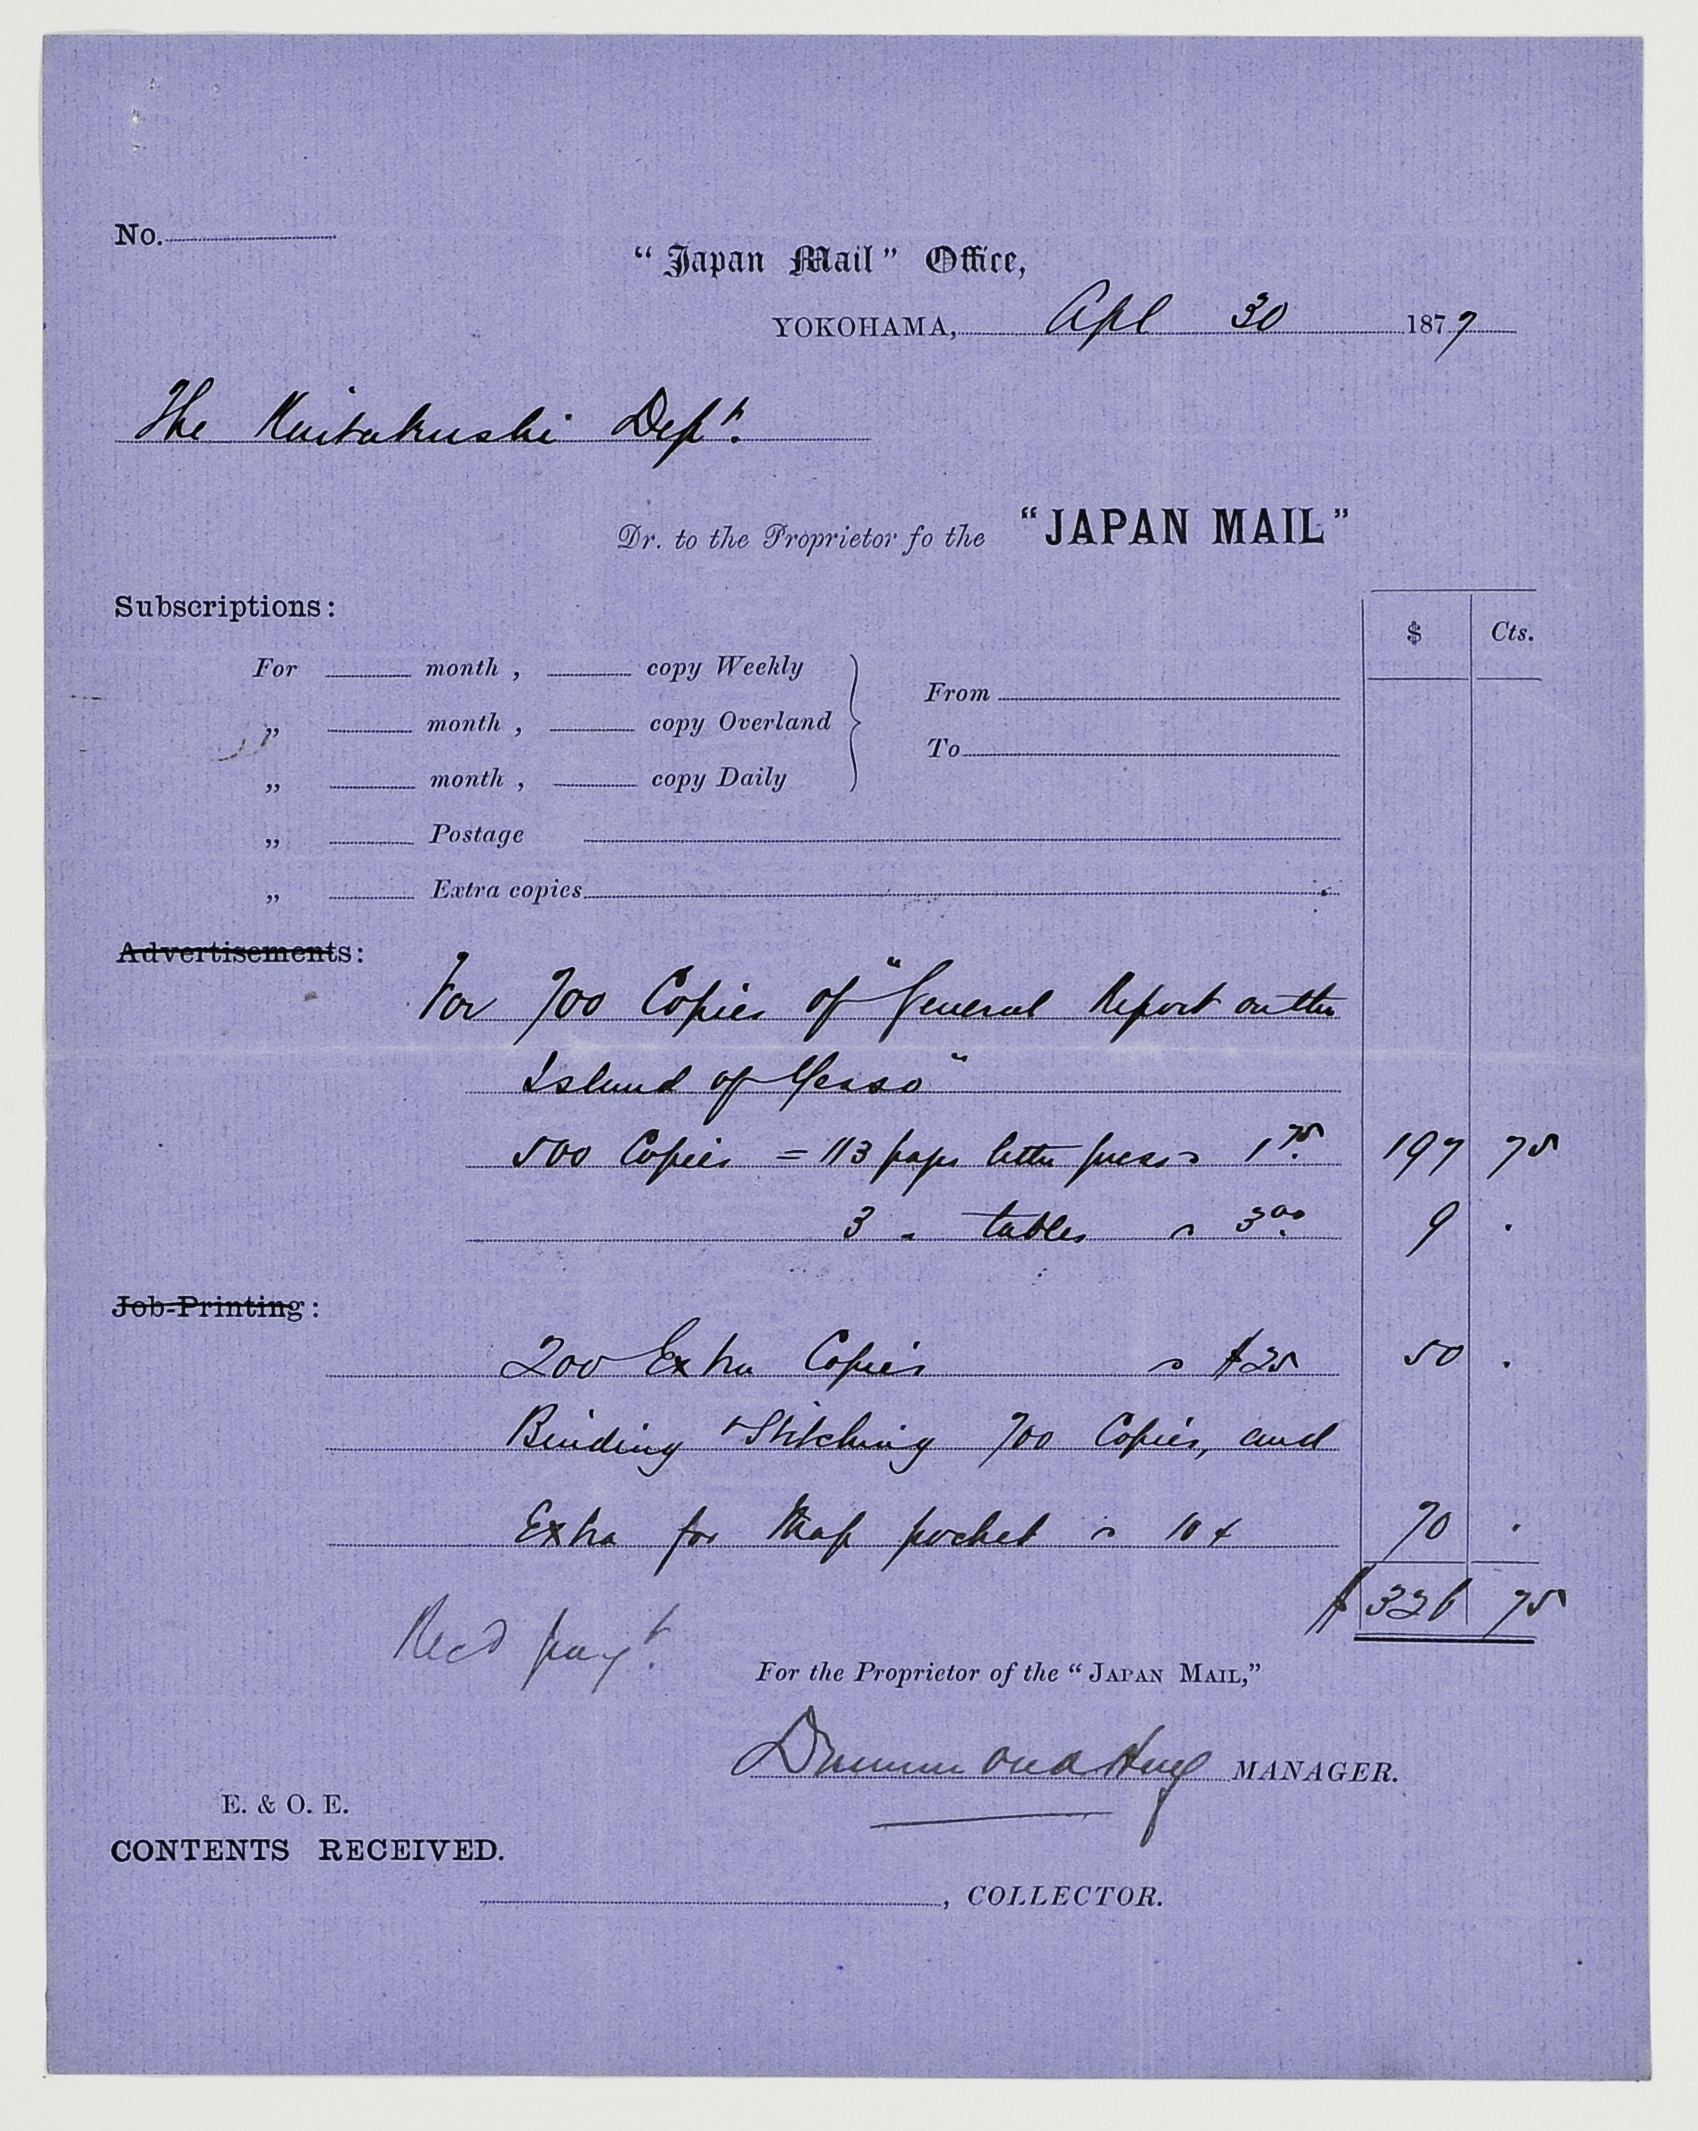 No.
"Japan Mail" Office,
YOKOHAMA, Apl 30 1877
The Kaitakushi Dept.
Dr. to the Proprietor fo the "JAPAN MAIL"
Subscriptions:
$ Cts.
For month , copy Weekly
„ month , copy Overland
„ month , copy Daily
From
To
„ Postage
„ Extra copies
Advertisements:
For 700 Copies of "General Report on the
Island of Yesso"
500 Copies = 113 pages letter press @ 1.75 197 75
3 " tables @ 3.00 9 .
Job-Printing:
200 Extra Copies @ $25 50 .
Binding & Stitching 700 Copies, and
Extra for Map pocket @ 10 ¢ 70 .
$ 326 75
Recd payt.
For the Proprietor of the "JAPAN MAIL,"
MANAGER.
E. & O. E.
CONTENTS RECEIVED.
, COLLECTOR.